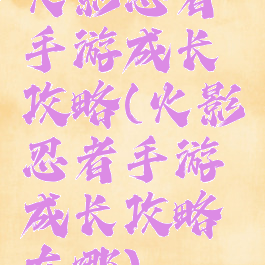 火影忍者
手游成长
攻略(火影
忍者手游
成长攻略